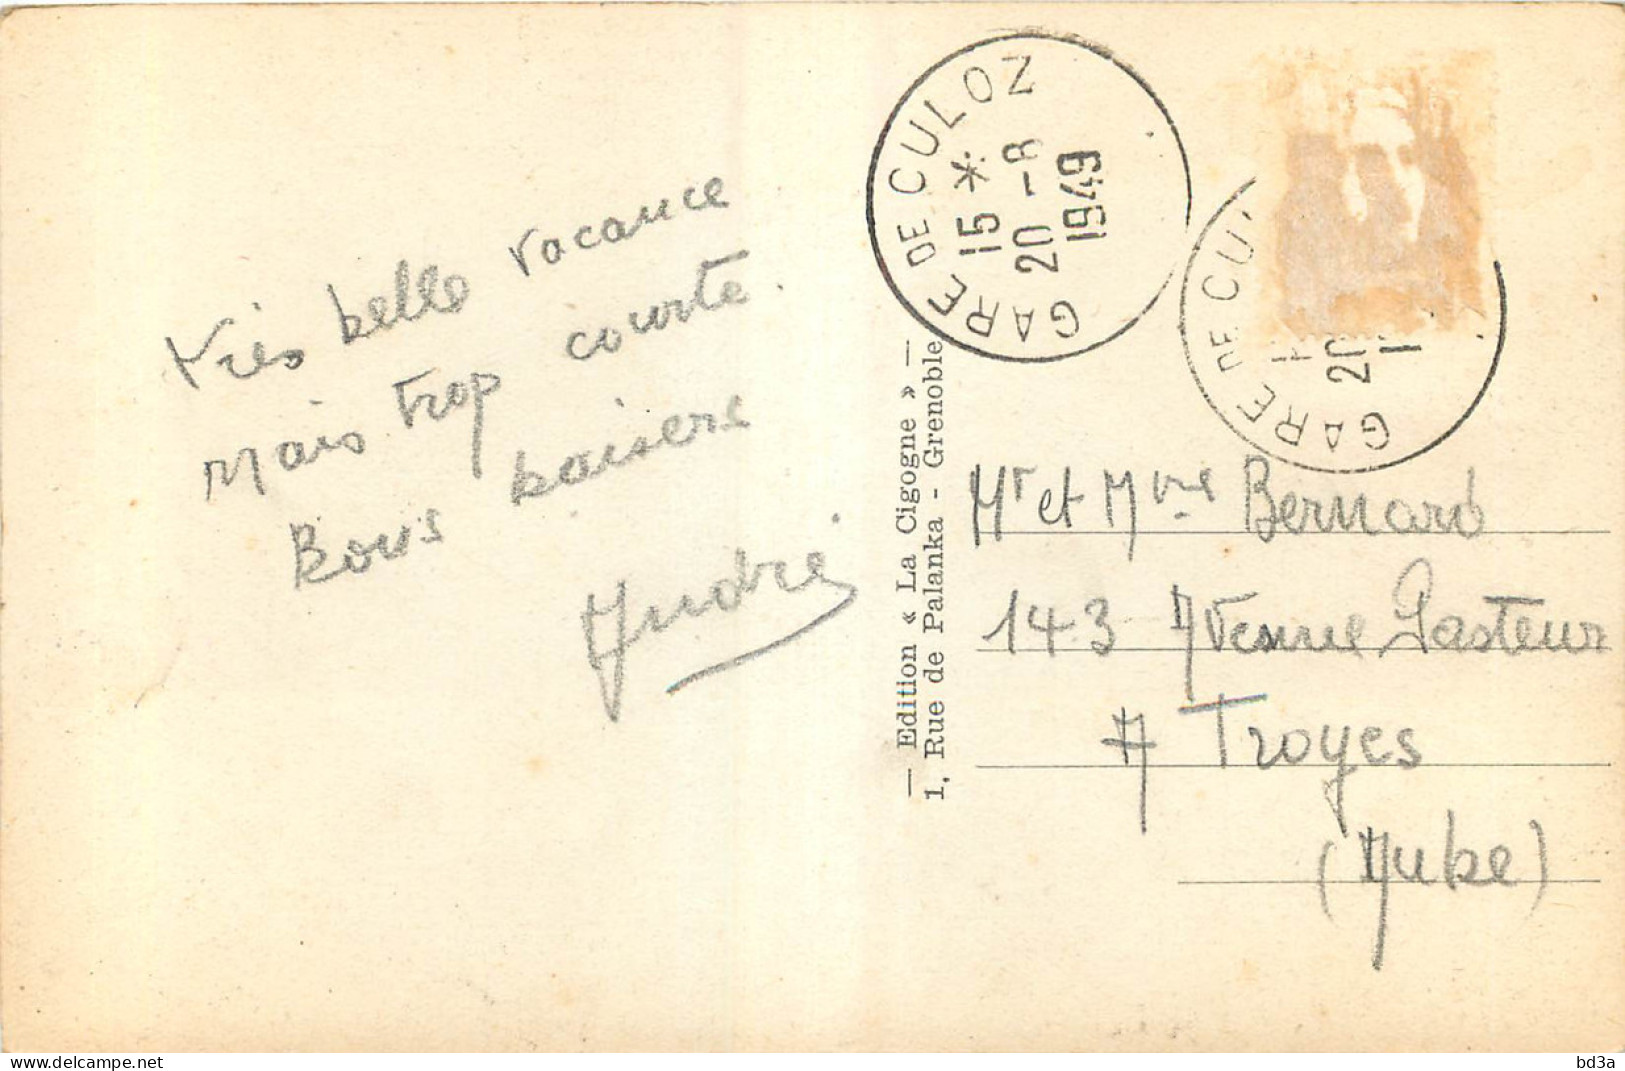 très belle vacance
Mais trop courte
Bons baisers
André
— Edition « La Cigogne » —
1, Rue de Palanka - Grenoble
GARE DE CULOZ
15 *
20 -8
1949
GARE DE CU
20
1
Mr et Mme Bernard
143 Avenue Pasteur
A Troyes
(Aube)
bd3a